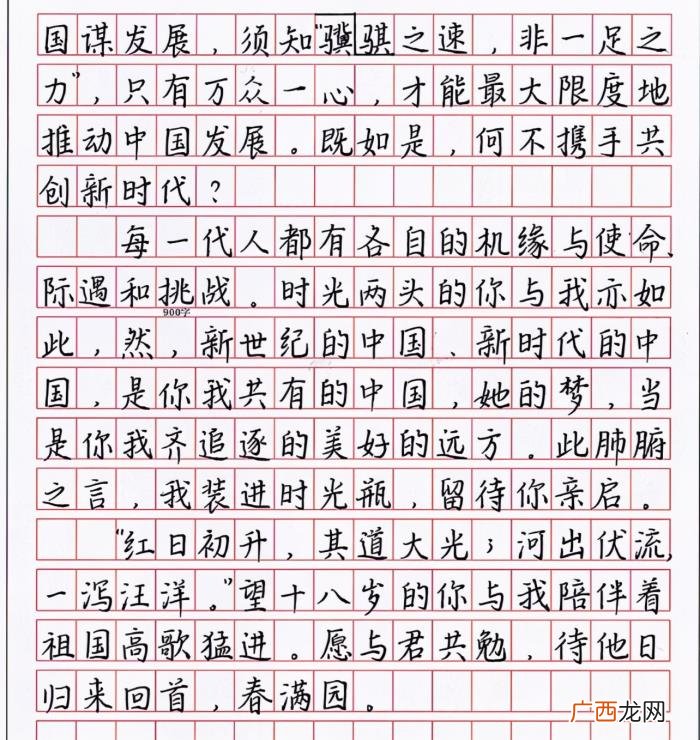 国谋发展，须知“骥骐之速，非一足之
力”，只有万众一心，才能最大限度地
推动中国发展。既如是，何不携手共
创新时代？
每一代人都有各自的机缘与使命、
际遇和挑战。时光两头的你与我亦如
900字
此，然，新世纪的中国、新时代的中
国，是你我共有的中国，她的梦，当
是你我齐追逐的美好的远方。此肺腑
之言，我装进时光瓶，留待你亲启。
“红日初升，其道大光；河出伏流，
一泻汪洋。”望十八岁的你与我陪伴着
祖国高歌猛进。愿与君共勉，待他日
归来回首，春满园。
广西龙网